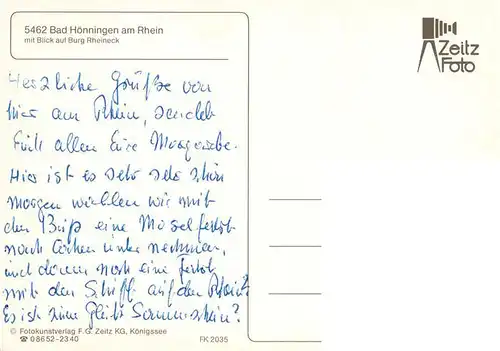 5462 Bad Hönningen am Rhein
mit Blick auf Burg Rheineck
Zeitz
Foto
Herzliche Grüße von
hier am Rhein, sendet
Euch allen Eure
Hier ist es sehr sehr schön
morgen wollen wir mit
den Bus eine Moselfahrt
nach Cochen unternehmen,
und dann noch eine Fahrt
mit den Schiff auf den Rhein
Es ist zum Glück Sonnenschein
© Fotokunstverlag F. G. Zeitz KG, Königssee
☎ 0 86 52–23 40 FK 2035